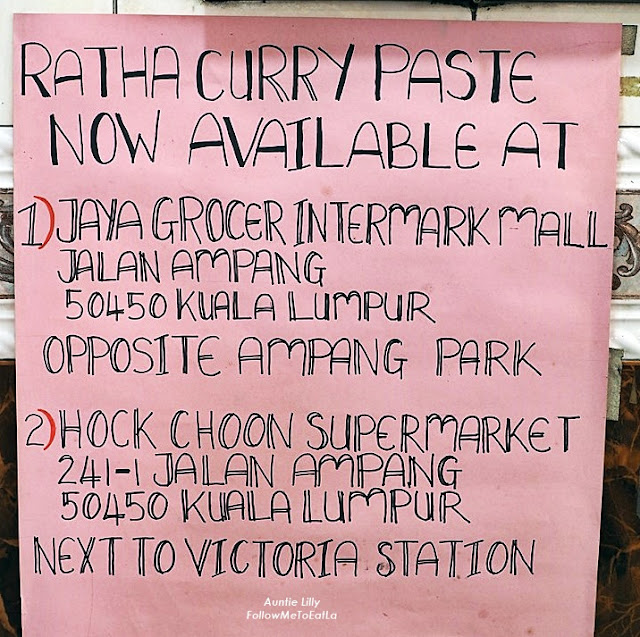 RATHA CURRY PASTE
NOW AVAILABLE AT
1) JAYA GROCER INTERMARK MALL
JALAN AMPANG
50450 KUALA LUMPUR
OPPOSITE AMPANG PARK
2) HOCK CHOON SUPERMARKET
241-1 JALAN AMPANG
50450 KUALA LUMPUR
NEXT TO VICTORIA STATION
Auntie Lilly
FollowMeToEatLa